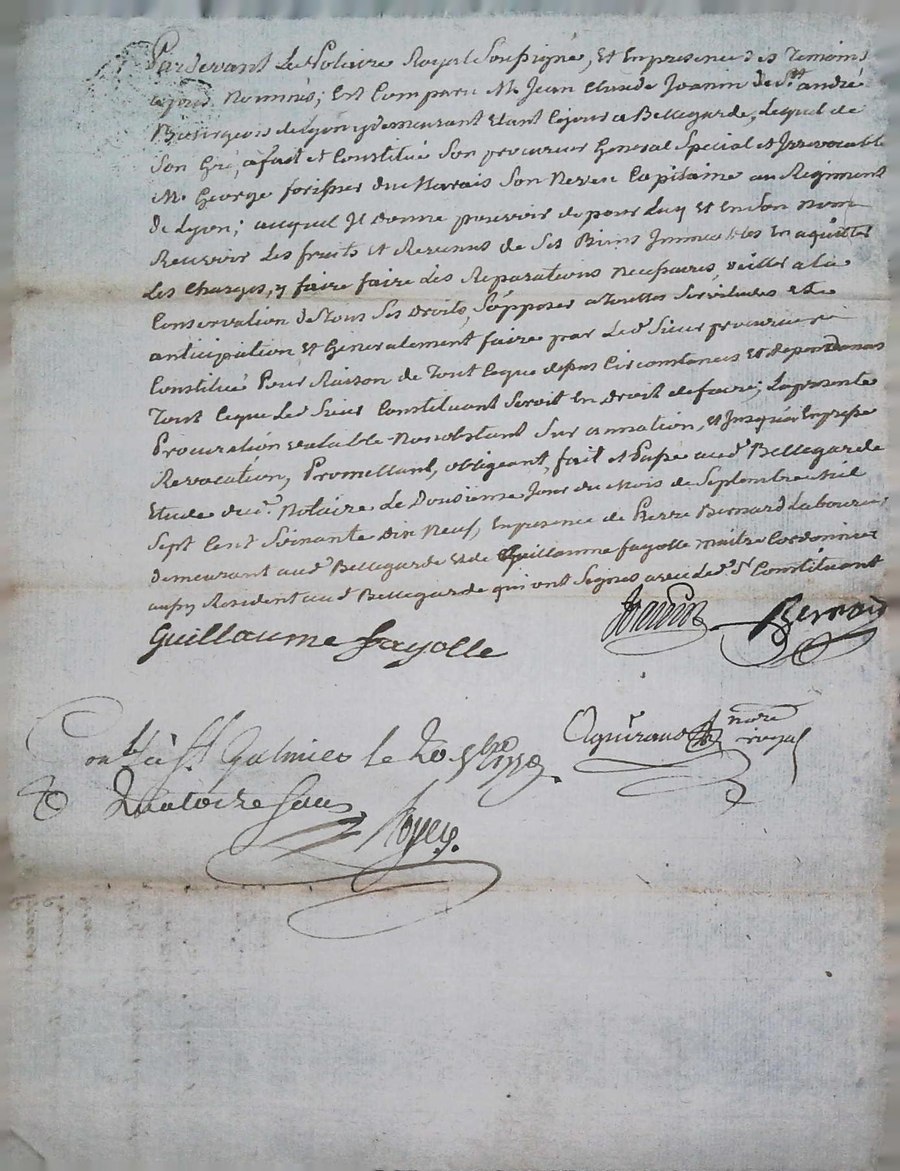 Pardevant Le Notaire Royal Soussigné, Et En presence des Temoins
Nommés; Est Comparu Mr. Jean Claude Joanin de St. andré
Bourgeois de Lyon y demeurant Etant Cejour a Bellegarde, Lequel de
Son Gré, a fait et Constitué Son procureur General Special et Irrevocable
Mr. George forissier du Marais Son Neveu Capitaine au Regiment
de Lyon; auquel Il donne pouvoir de pour Luy Et En Son Nom
Recevoir Les fruits et Revenus de Ses Biens Immeubles En aquitter
Les Charges, y faire faire des Reparations Necessaires, veiller a la
Conservation de Tous Ses Droits, S'opposer a Toutes Servitudes Et
anticipation Et Generalement faire par Led. Sieur procureur
Constitué Pour Raison de Tout Ceque dessus Circonstances Et dependances
Tout Ceque Led. Sieur Constituant Seroit En Droit de faire; Lapresente
Procuration valable Nonobstant Sur annation, Et Jusqu'a Expresse
Revocation, Promettant, obligeant, fait et Passé aud. Bellegarde
Etude dud. Notaire Le Dousieme Jour du Mois de Septembre Mil
Sept Cent Soixante Dix Neuf, En presence de Pierre Bernard Laboureur
demeurant aud. Bellegarde Et de Guillaume fayolle maitre Cordonnier
aussy Resident aud. Bellegarde qui ont Signés avec led. Sr. Constituant
Guillaume Fayolle Bernard
nore
Contlé à St. Galmier le 20 7bre 1779. royal
Quatorze Sous Royer.